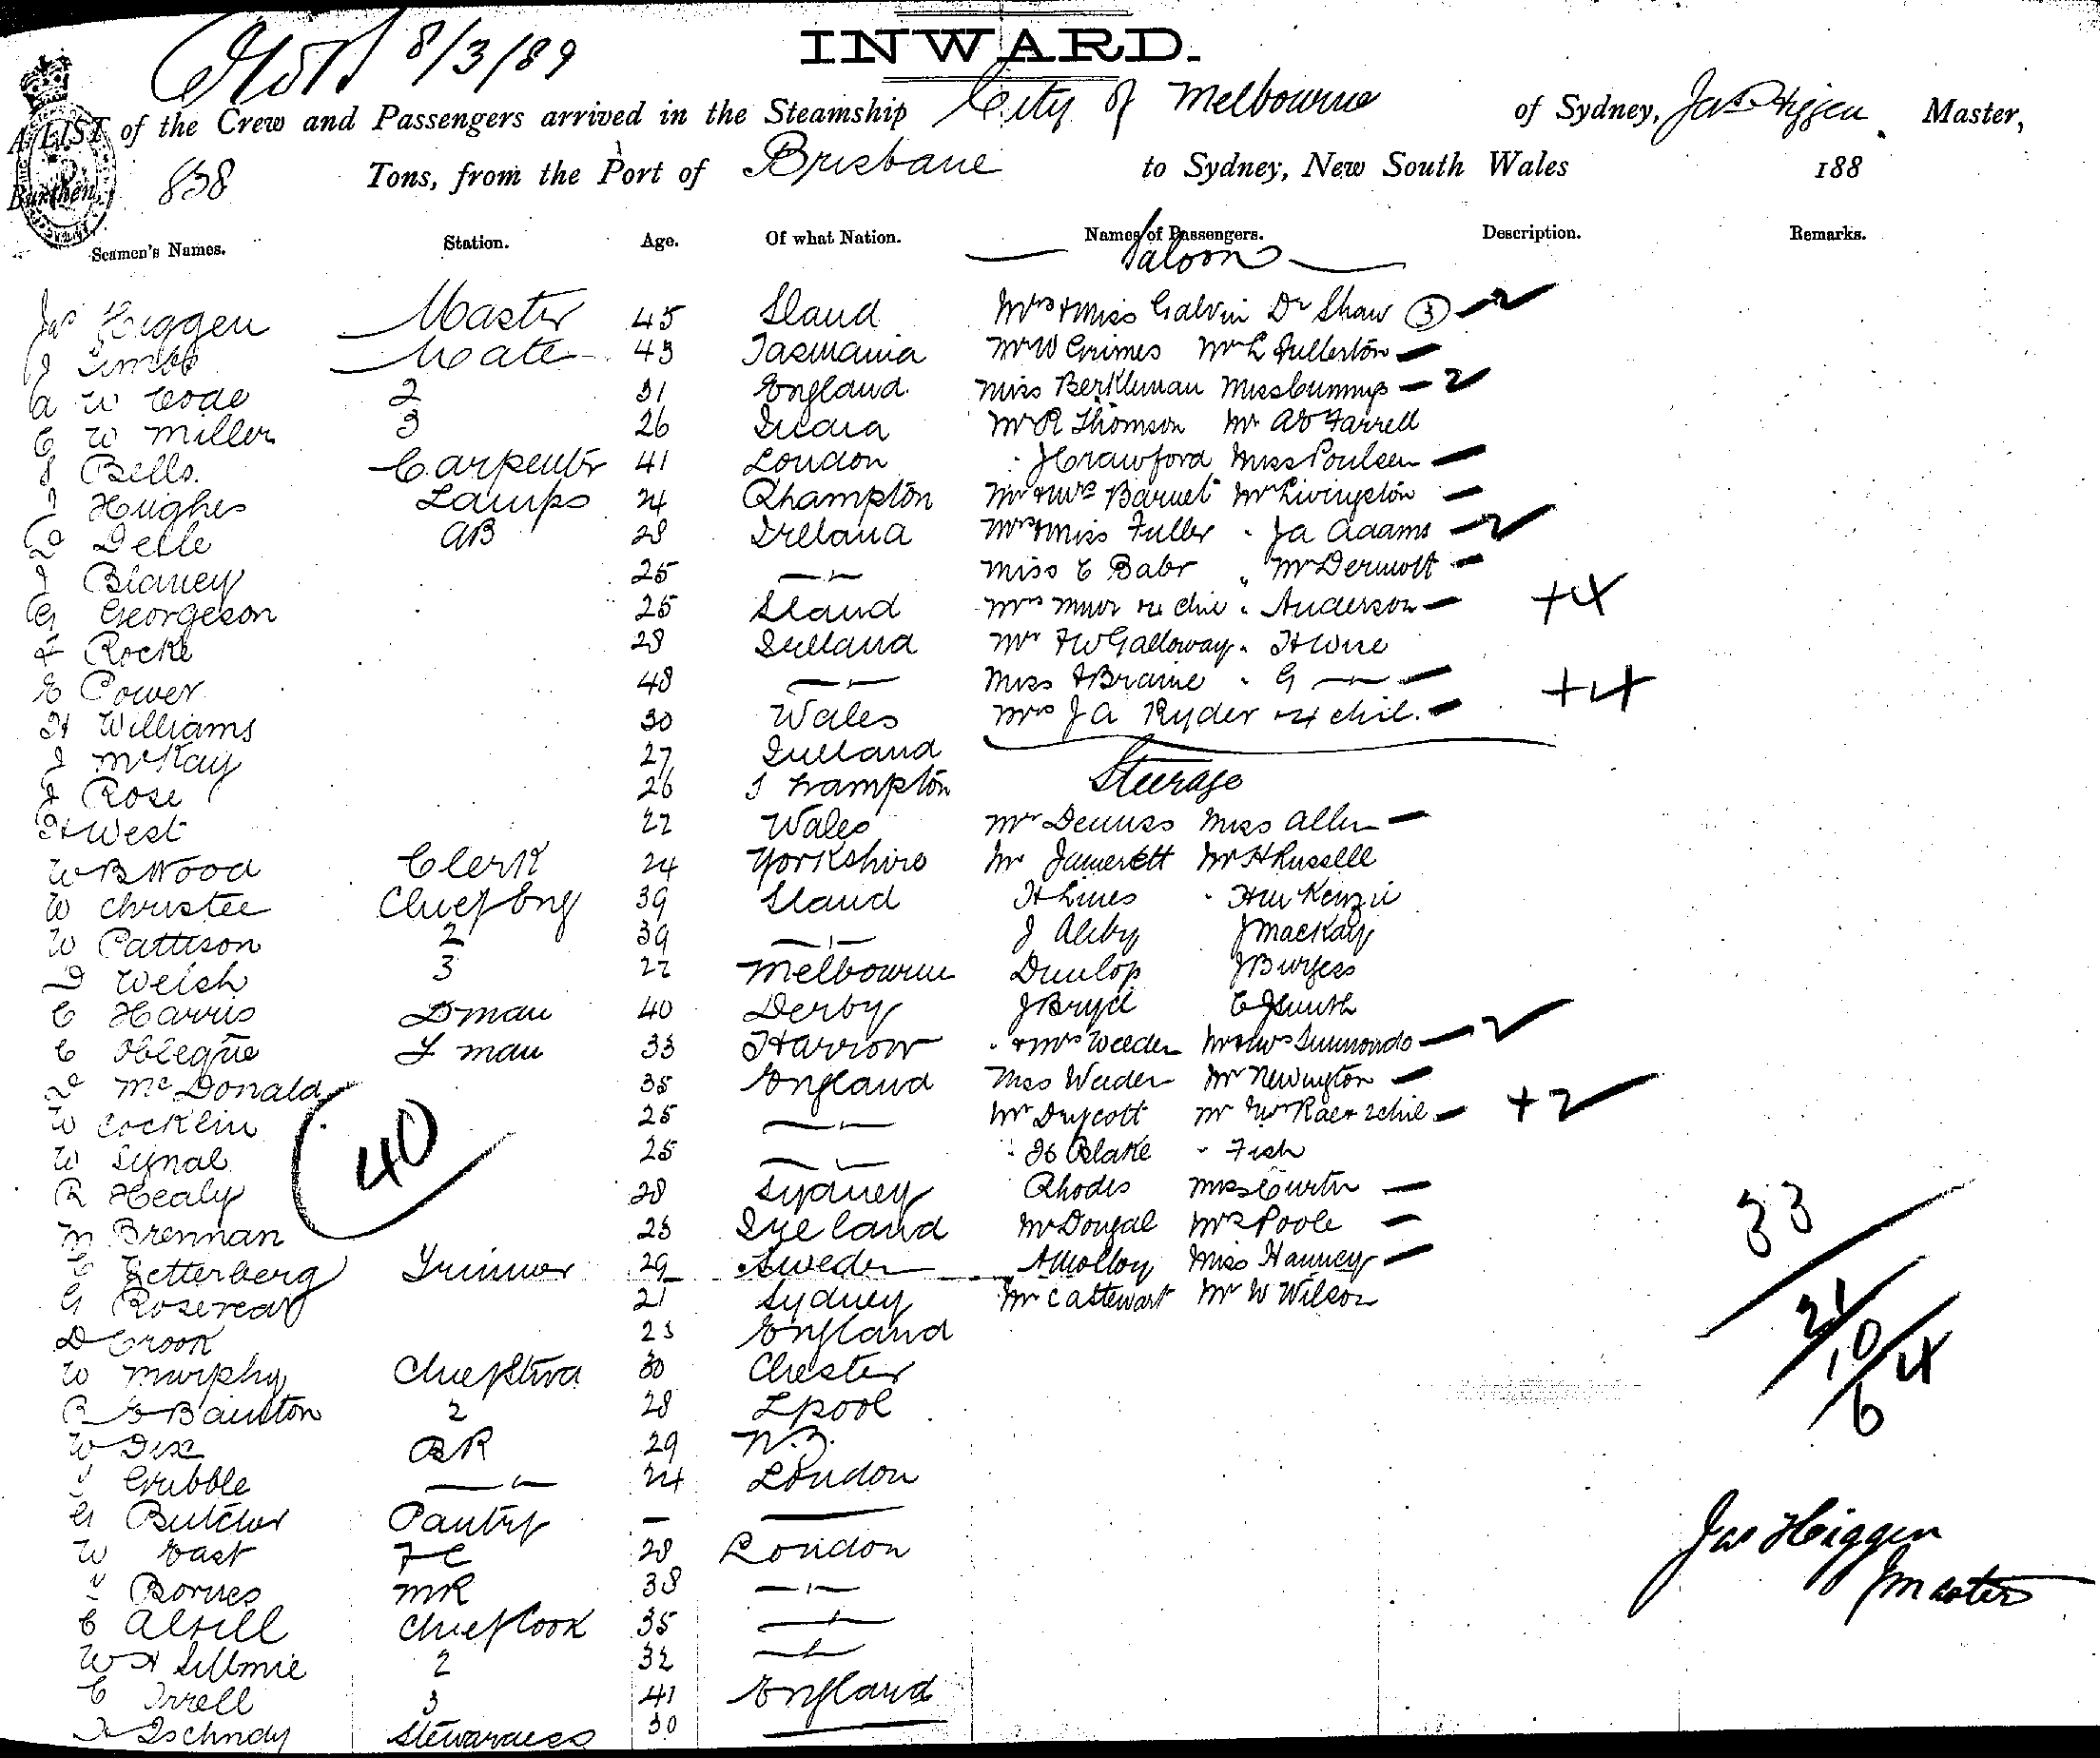 8/3/89
INWARD.
A LIST of the Crew and Passengers arrived in the Steamship City of Melbourne of Sydney, Jas Higgen Master,
Burthen, 838 Tons, from the Port of Brisbane to Sydney, New South Wales 188
Seamen's Names. Station. Age. Of what Nation. Names of Passengers. Description. Remarks.
Saloon
Jas Higgen Master 45 Sland Mrs + Miss Galvin Dr Shaw 3 - 2
J Mate 43 Tasmania Mr W Grimes Mr L Fullerton -
A W Code 2 31 England Miss Berkleman Miss Cummings - 2
C W Miller 3 26 India Mr R Thomson Mr Farrell
J Bells. Carpenter 41 London J Crawford Miss Poulsen -
J Hughes Lamps 24 Rhampton Mr + Mrs Barnet Mr Livingston -
D Delle AB 28 Ireland Mrs + Miss Fuller " Ja Adams - 2
J Blaney 25 -"- Miss E Babr " McDermott -
G Georgeson 25 Sland Mrs Muir + 4 chil " Anderson - +4
F Rocke 28 Ireland Mr F W Galloway "
E Power 48 -"- Miss J Braine " G -"- -
H Williams 30 Wales Mrs J A Ryder + 4 chil. - +4
J McKay 27 Ireland
J Rose 26 S hampton Steerage
H West 22 Wales Mr Denniss Miss Allen -
W B Wood Clerk 24 Yorkshire Mr Jamerett Mr H Russell
W Christee Chief Eng 39 Sland H Lines " H McKenzie
W Pattison 2 39 -"- J Alby J Mackay
D Welsh 3 22 Melbourne Dunlop J Burgess
C Harris D man 40 Derby J Bryd C J Smith
C Obleque F man 33 Harrow " + Mrs Weeden Mr + Mrs Simmonds - 2
D McDonald 35 England Miss Weeden Mr Newington -
W Cocklin 40 25 -"- Mr Drycott Mr McRae + 2 chil - +2
W Lynal 25 -"- " Blake " Fish
R Healy 28 Sydney Rhodes Miss Curtis - 33
M Brennan 23 Ireland McDougal Mrs Poole -
C Zetterberg Trimmer 29 Sweden A Molloy Miss Hanney -
G Rosevear 21 Sydney Mr C A Stewart Mr W Wilson 21
D Crook 23 England 10 4
W Murphy Chief Stwd 30 Chester 6
R G Bainton 2 28 Lpool
W Dix BR 29 N.Z.
J Gribble -"- 24 London
G Butcher Pantry - -
W East FC 28 London
J Bornes MR 38 -"- Jas Higgen
C Altill Chief Cook 35 -"- Master
W H 2 32 -"-
C Irrell 3 41 England
Stewardess 30